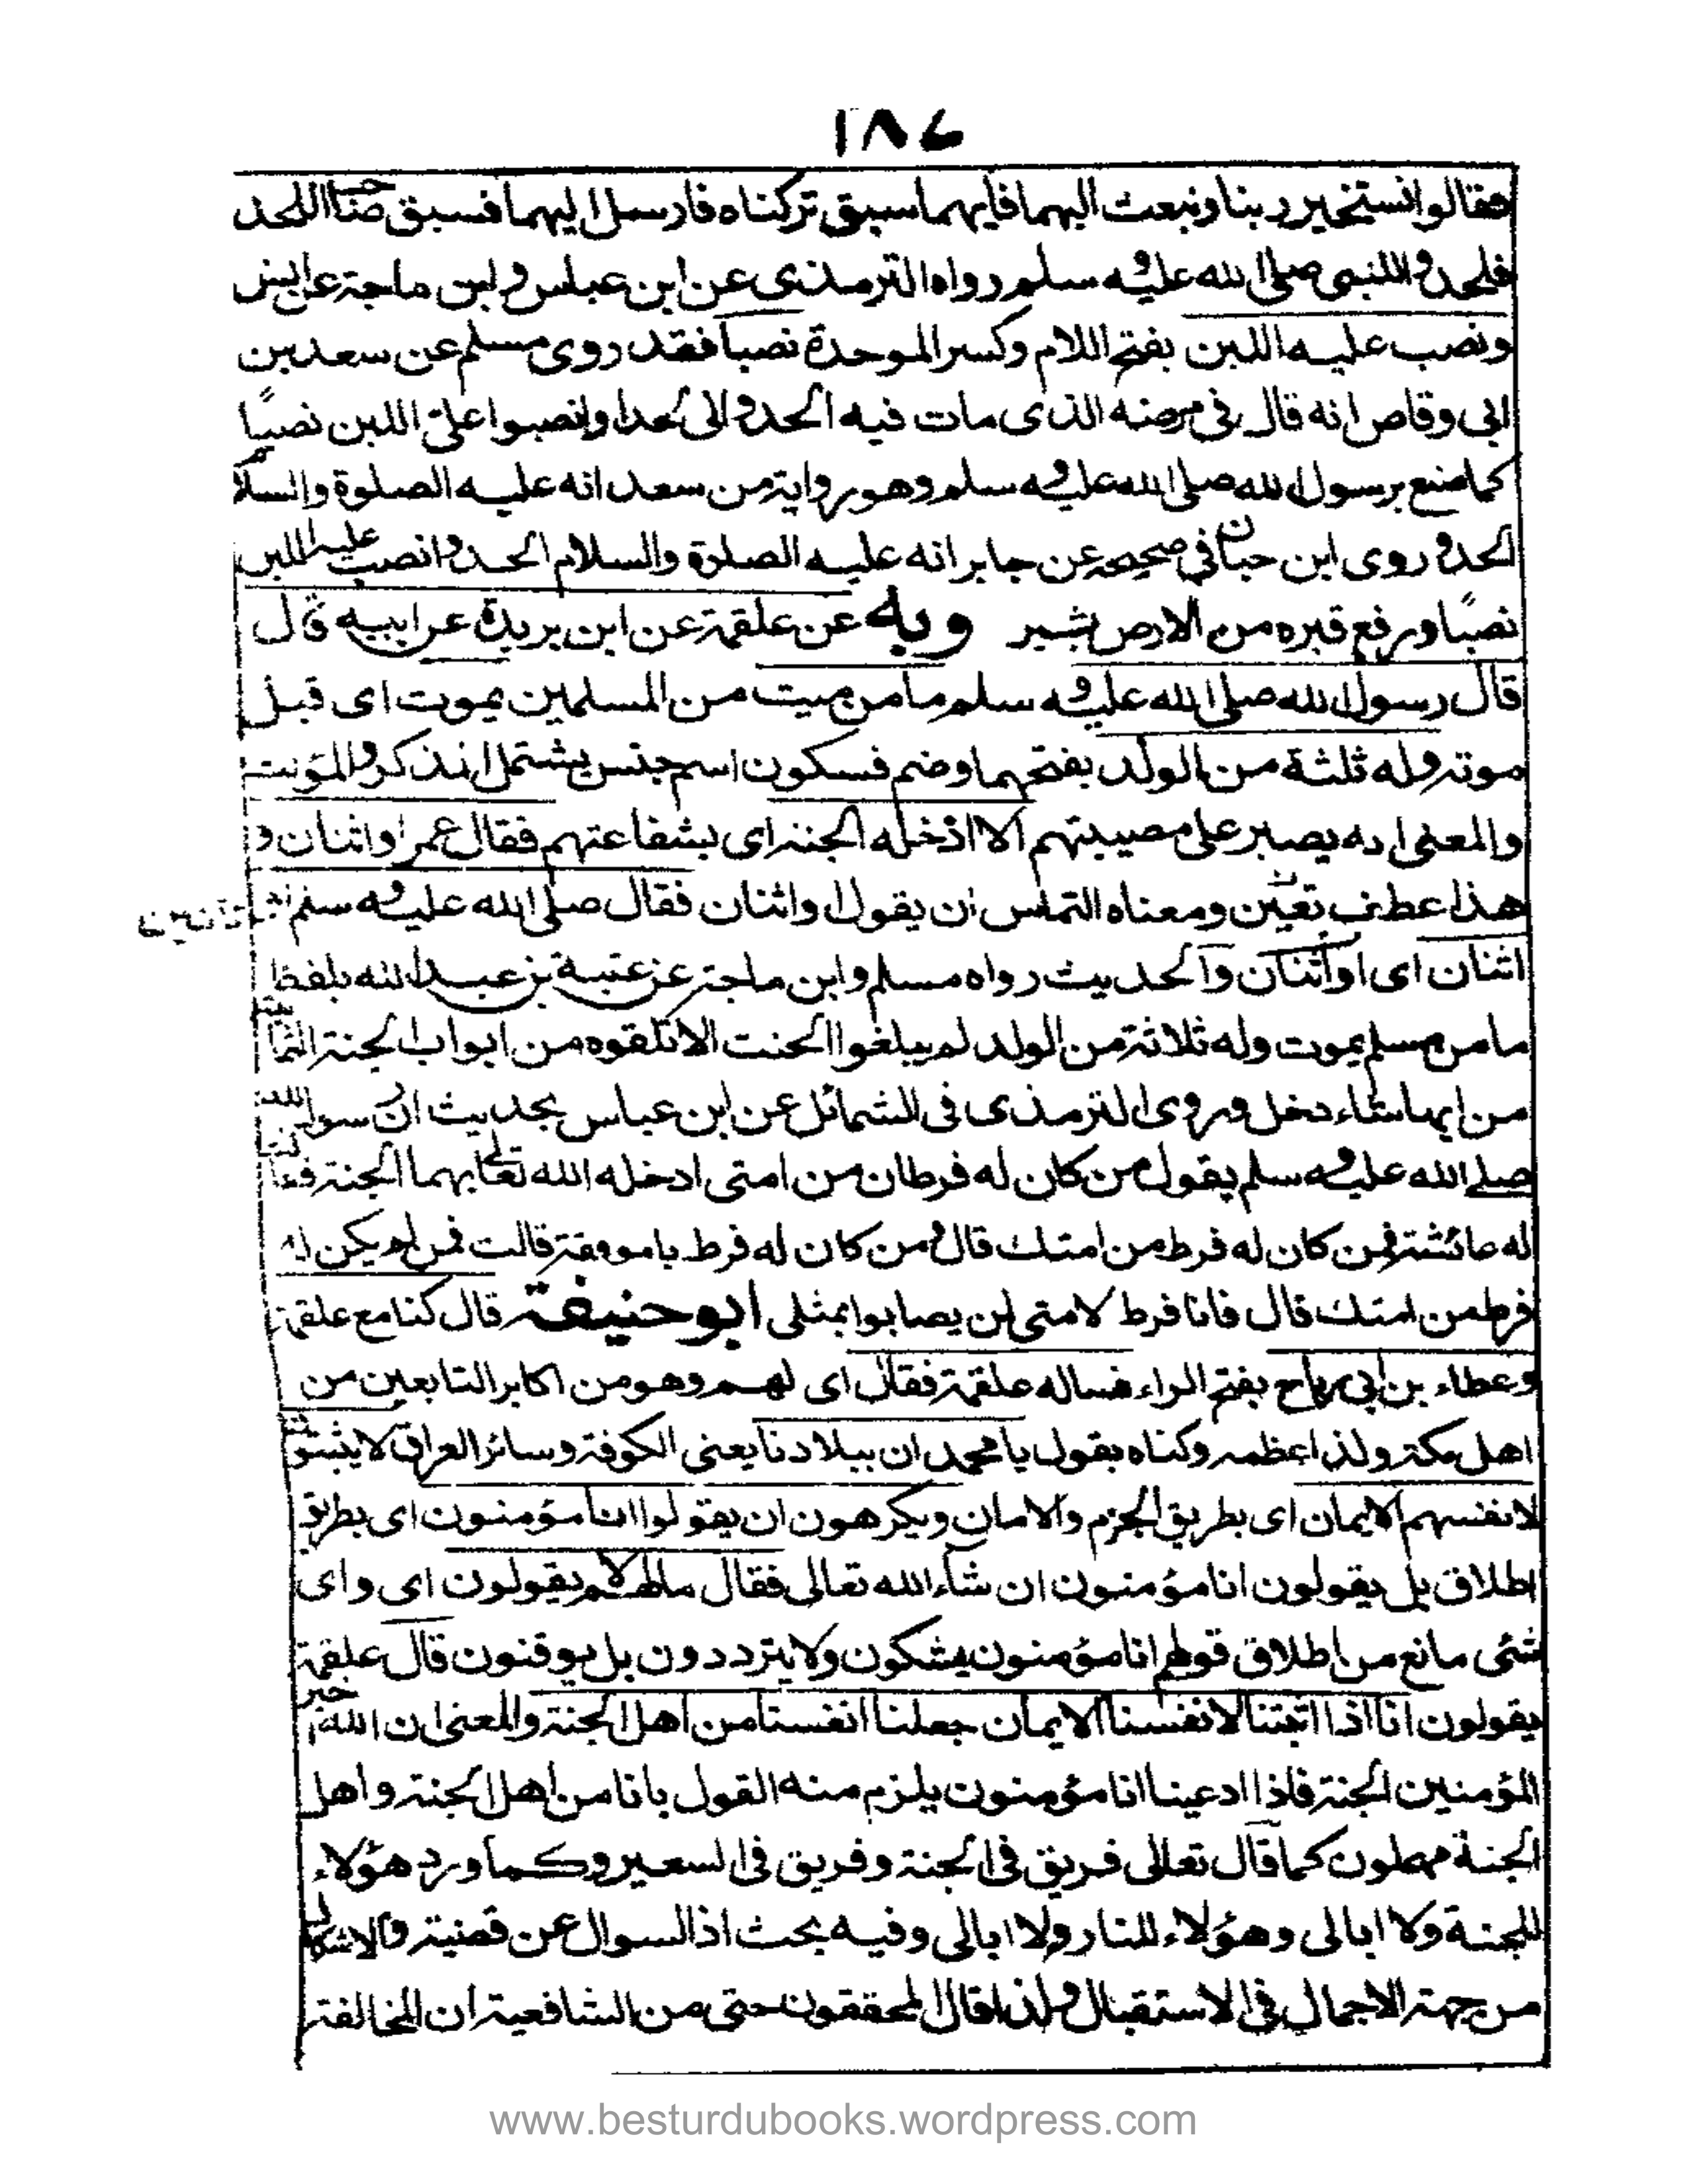 ١٨٦
فقالوا نستخير ربنا ونبعث اليهما فايهما سبق تركناه فارسل اليهما فسبق صاحب اللحد
فلحدوا للنبى صلى الله عليه وسلم رواه الترمذى عن ابن عباس وابن ماجة عن انس
ونصب عليه اللبن بفتح اللام وكسر الموحدة نصبا فقد روى مسلم عن سعد بن
ابى وقاص انه قال فى مرضه الذى مات فيه الحدوا لى لحدا وانصبوا على اللبن نصبًا
كما صنع برسول الله صلى الله عليه وسلم وهو رواية من سعد انه عليه الصلوة والسلام
الحد وروى ابن حبان فى صحيحه عن جابر انه عليه الصلوة والسلام الحد وانصب عليه اللبن
نصبًا ورفع قبره من الارض بشبر وبه عن علقمة عن ابن بريدة عن ابيه قال
قال رسول الله صلى الله عليه وسلم ما من ميت من المسلمين يموت اى قبل
موته وله ثلثة من الولد بفتحهما وضم فسكون اسم جنس يشتمل المذكر والمؤنث
والمعنى انه يصبر على مصيبتهم الا ادخله الجنة اى بشفاعتهم فقال عمر او اثنان و
هذا عطف تعيّن ومعناه التماس ان يقول او اثنان فقال صلى الله عليه وسلم
اثنان اى او اثنان والحديث رواه مسلم وابن ماجة عن عتبة بن عبد الله بلفظ
ما من مسلم يموت وله ثلاثة من الولد لم يبلغوا الحنث الا تلقوه من ابواب الجنة الثمانية
من ايها شاء دخل وروى الترمذى فى الشمائل عن ابن عباس يحديث ان رسول الله
صلى الله عليه وسلم يقول من كان له فرطان من امتى ادخله الله تعالى بهما الجنة فقالت
له عائشة فمن كان له فرط من امتك قال ومن كان له فرط يا موفقة قالت فمن لم يكن له
فرط من امتك قال فانا فرط لامتى لن يصابوا بمثلى ابو حنيفة قال كنا مع علقمة
وعطاء بن ابى رباح بفتح الراء فساله علقمة فقال اى لهم وهو من اكابر التابعين من
اهل مكة ولذا عظمه وكناه بقول يا محمد ان ببلادنا يعنى الكوفة وسائر العراق لا يثبتون
لانفسهم الايمان اى بطريق الجزم والامان ويكرهون ان يقولوا انا مؤمنون اى بطريق
اطلاق بل يقولون انا مؤمنون ان شاء الله تعالى فقال مالهم لا يقولون اى واى
شئى مانع من اطلاق قولهم انا مؤمنون يشكون ولا يترددون بل يوقنون قال علقمة
يقولون انا اذا اثبتنا لانفسنا الايمان جعلنا انفسنا من اهل الجنة والمعنى ان الله
المؤمنين الجنة فاذا ادعينا انا مؤمنون يلزم منه القول بانا من اهل الجنة واهل
الجنة كما قال تعالى فريق فى الجنة وفريق فى السعير وكما ورد هؤلاء
للجنة ولا ابالى وهؤلاء للنار ولا ابالى وفيه بحث اذ السوال عن قضية والاشكال
من جهة الاجمال فى الاستقبال ولذا قال المحققون حتى من الشافعية ان المخالفة
www.besturdubooks.wordpress.com